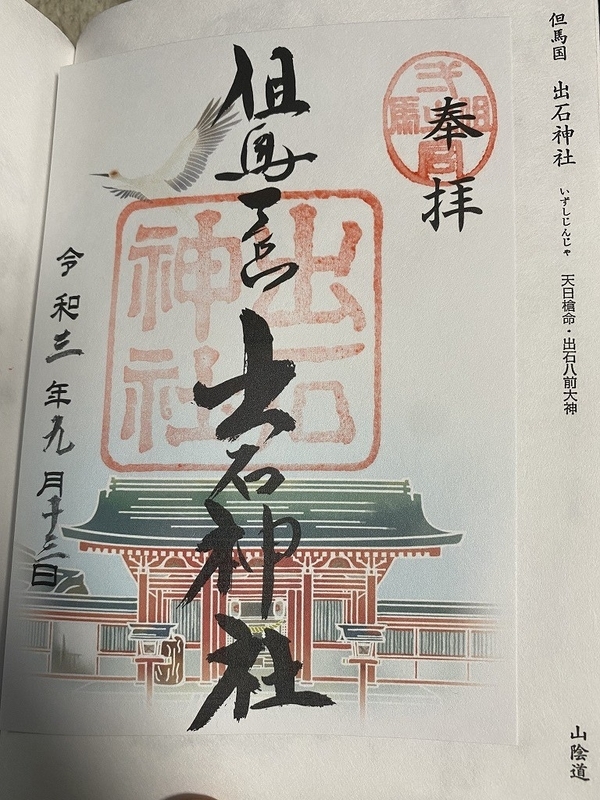 但馬国 出石神社 いずしじんじゃ 天日槍命・出石八前大神
山陰道
奉拝
但馬一宮 出石神社
出石
神社
令和三年九月十三日